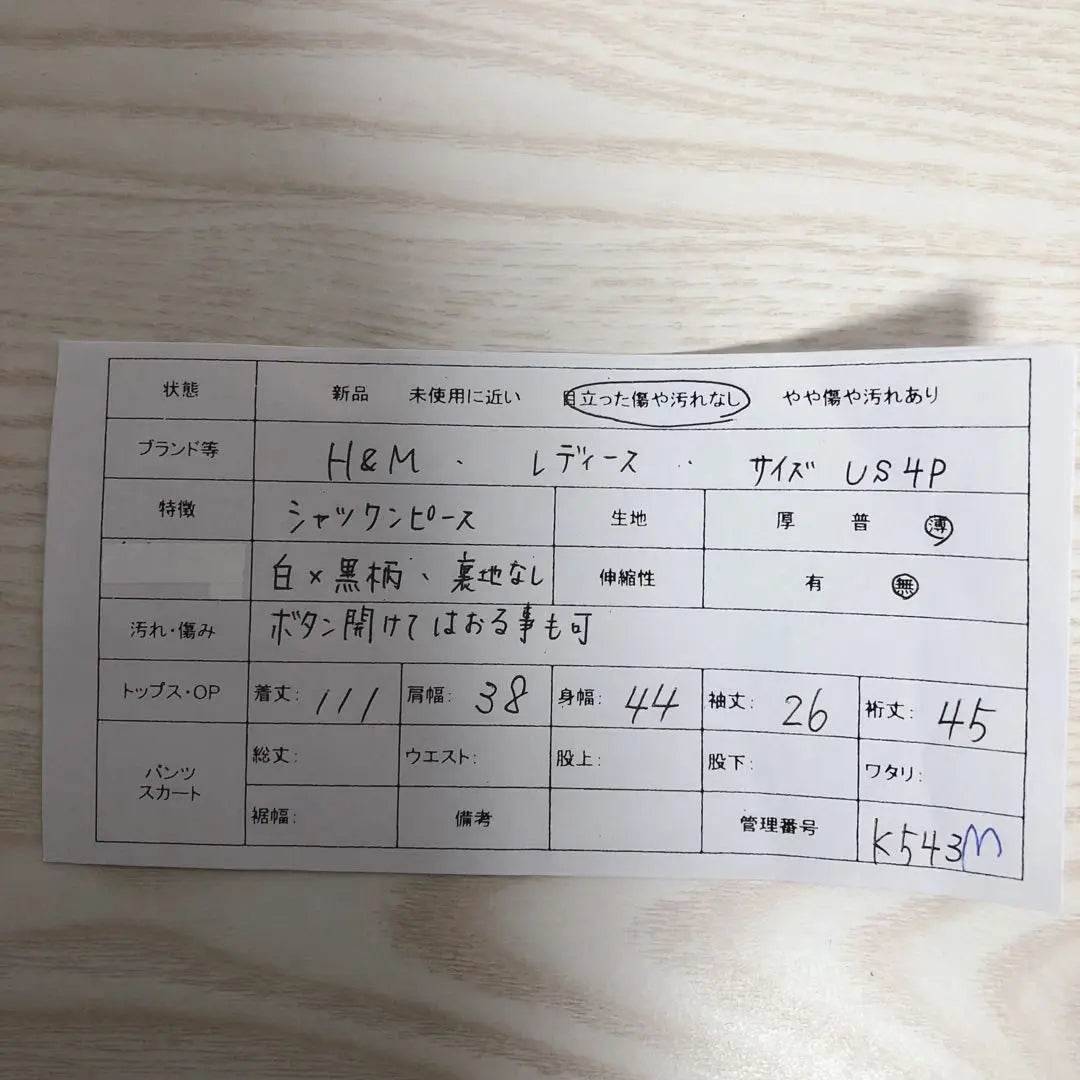 状態 新品 未使用に近い 目立った傷や汚れなし やや傷や汚れあり
ブランド等 H&M ・ レディース ・ サイズ US4P
特徴 シャツワンピース 生地 厚 普 薄
白×黒柄、裏地なし 伸縮性 有 無
汚れ・傷み ボタン開けてはおる事も可
トップス・OP 着丈: 111 肩幅: 38 身幅: 44 袖丈: 26 裄丈: 45
パンツ スカート 総丈: ウエスト: 股上: 股下: ワタリ:
裾幅: 備考 管理番号 K543M